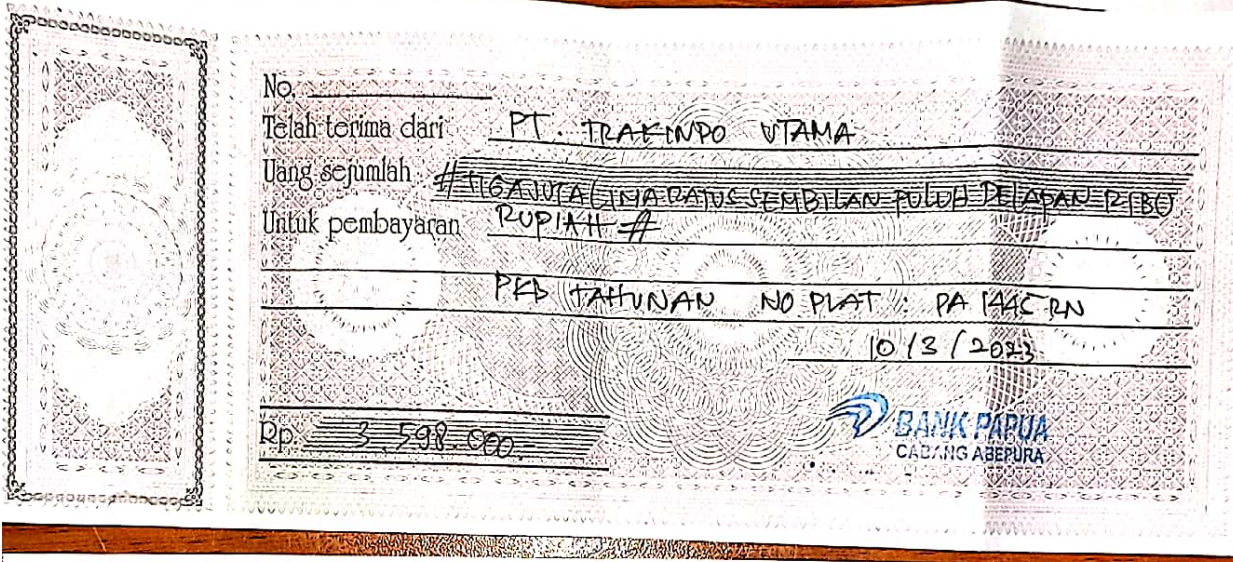 No.
Telah terima dari PT. TRAKINDO UTAMA
Uang sejumlah # TIGA JUTA LIMA RATUS SEMBILAN PULUH DELAPAN RIBU
Untuk pembayaran RUPIAH #
PKB TAHUNAN NO PLAT : PA 1445 RN
10/3/2023
Rp. 3.598.000.-
BANK PAPUA
CABANG ABEPURA